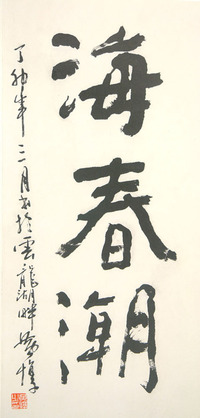 海春潮
丁卯年三月書於雲龍湖畔